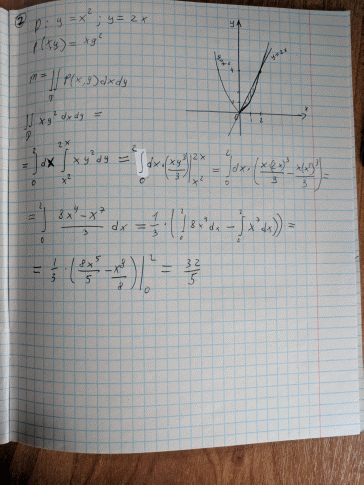 ② D: y = x² ; y = 2x
P(x,y) = xy²
m = ∬_D P(x,y) dxdy
∬_D xy² dxdy =
= ∫₀² dx ∫_{x²}^{2x} xy² dy = ∫₀² dx · (xy³/3) |_{x²}^{2x} = ∫₀² dx · (x·(2x)³/3 − x(x²)³/3) =
= ∫₀² (8x⁴ − x⁷)/3 dx = 1/3 · (∫₀² 8x⁴ dx − ∫₀² x⁷ dx)) =
= 1/3 · (8x⁵/5 − x⁸/8) |₀² = 32/5
y
y=2x
x
1 2